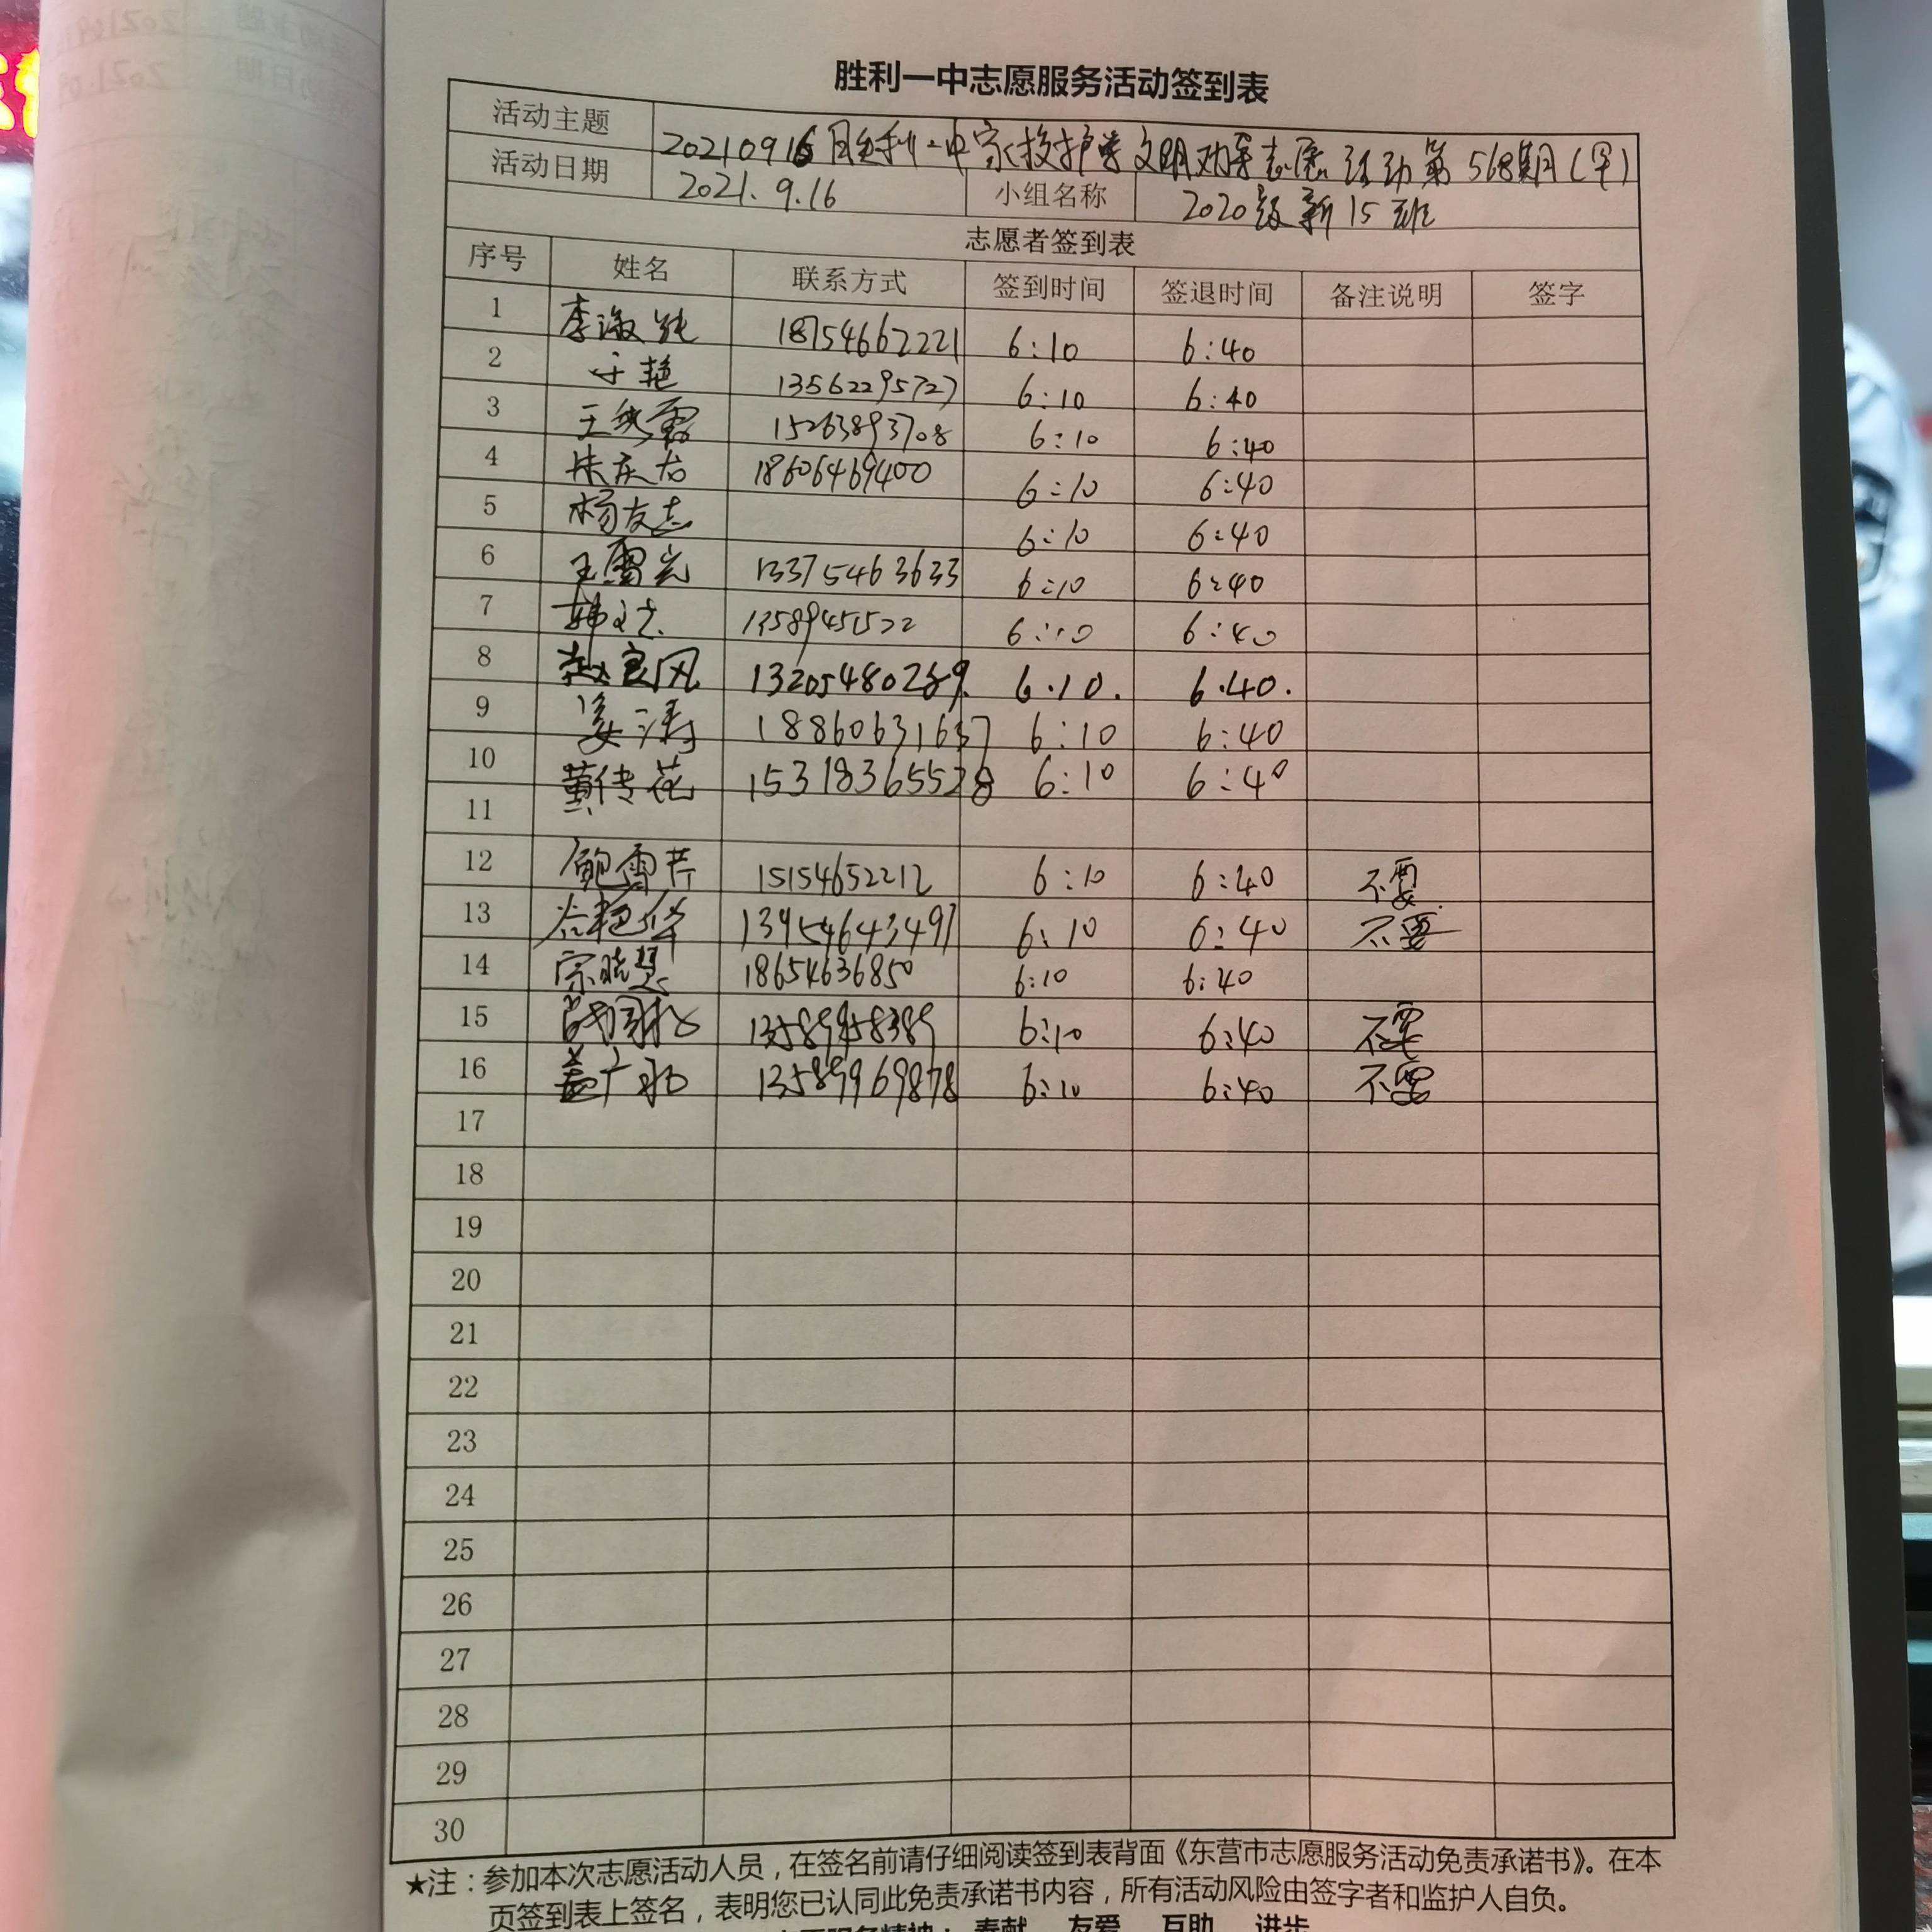 胜利一中志愿服务活动签到表
活动主题 20210916胜利一中家校护学文明劝导志愿活动第568期(早)
活动日期 2021.9.16 小组名称 2020级新15班
志愿者签到表
序号 姓名 联系方式 签到时间 签退时间 备注说明 签字
1 李淑 18754662221 6:10 6:40
2 于艳 13562295727 6:10 6:40
3 王 15263893708 6:10 6:40
4 18606469400 6:10 6:40
5 杨友志 6:10 6:40
6 王雷 13375463633 6:10 6:40
7 韩 6:10 6:40
8 赵良风 6.10. 6.40.
9 姜涛 18860631637 6:10 6:40
10 黄传花 15318365528 6:10 6:40
11
12 鲍雪芹 15154652212 6:10 6:40 不要
13 艳华 13954643497 6:10 6:40 不要
14 宗晓慧 18654636850 6:10 6:40
15 13589958389 6:10 6:40 不要
16 盖广 13589969878 6:10 6:40 不要
17
18
19
20
21
22
23
24
25
26
27
28
29
30
★注：参加本次志愿活动人员，在签名前请仔细阅读签到表背面《东营市志愿服务活动免责承诺书》。在本
页签到表上签名，表明您已认同此免责承诺书内容，所有活动风险由签字者和监护人自负。
志愿服务精神： 奉献 友爱 互助 进步